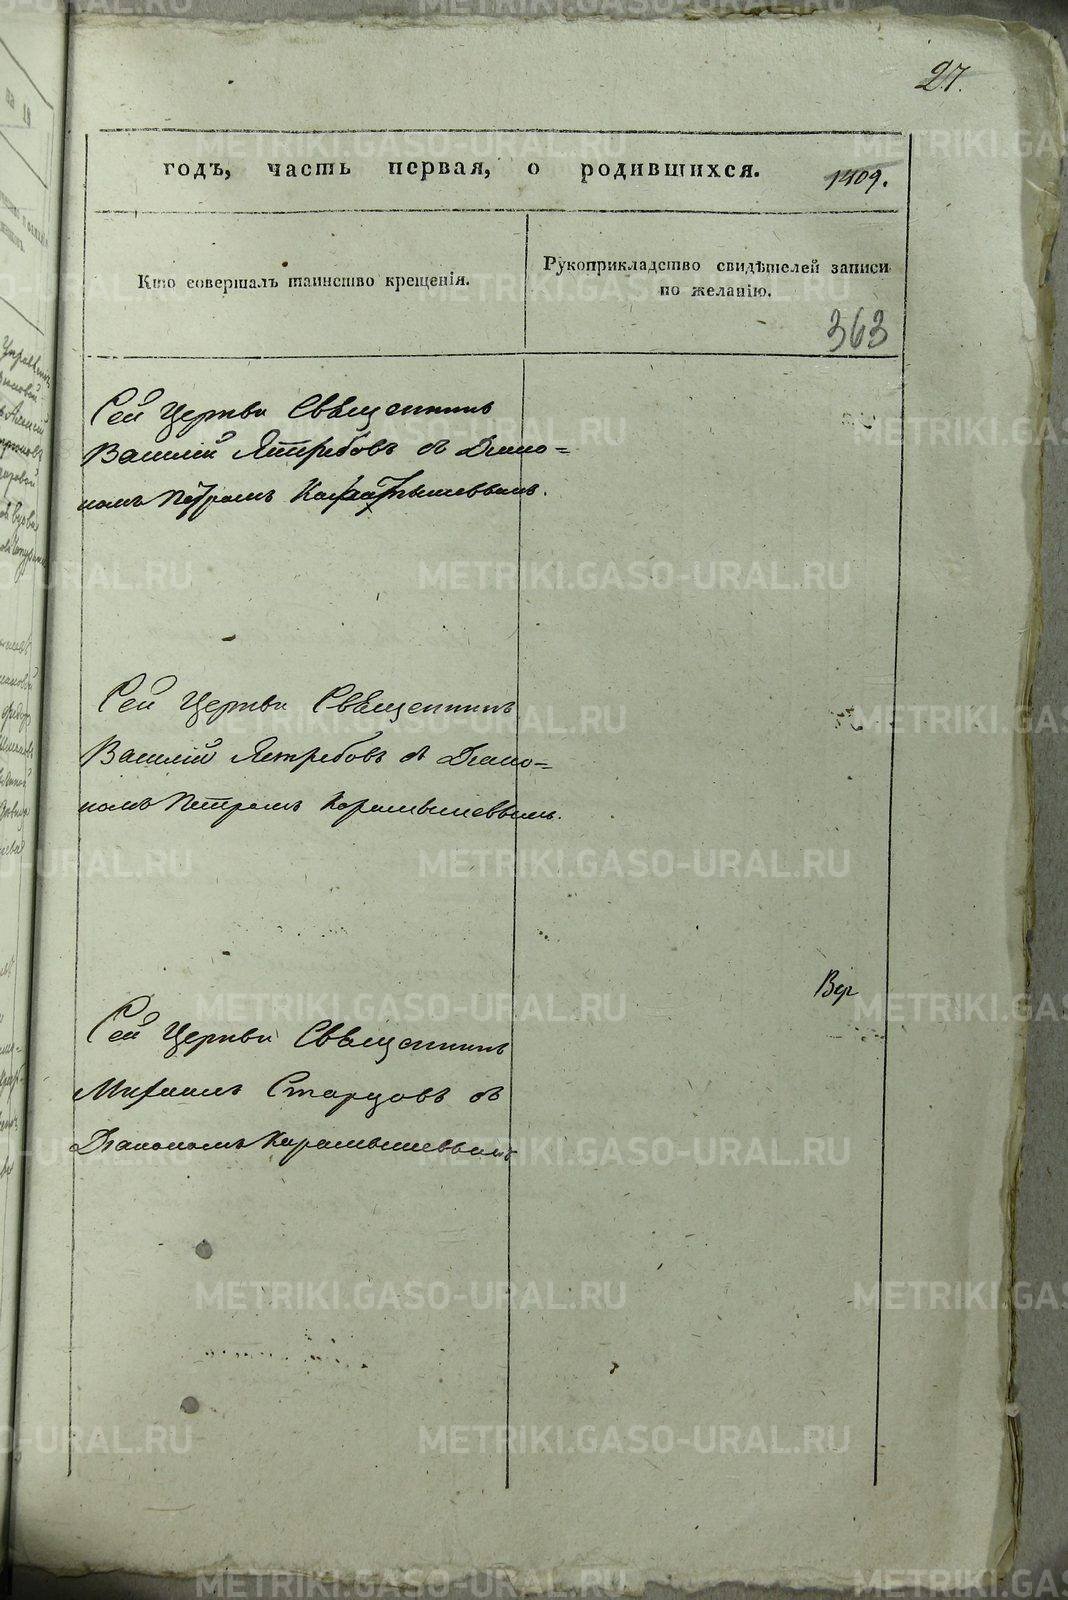 27.
годъ, часть первая, о родившихся. 1409.
Кто совершалъ таинство крещенія.
Рукоприкладство свидѣтелей записи
по желанію.
363
Сей Церкви Священникъ
Василій Ястребовъ съ Діако=
номъ Петромъ Карамышевымъ.
Сей Церкви Священникъ
Василій Ястребовъ съ Діако=
номъ Петромъ Карамышевымъ.
Вер
Сей Церкви Священникъ
Михаилъ Старцовъ съ
Діакономъ Карамышевымъ
METRIKI.GASO-URAL.RU